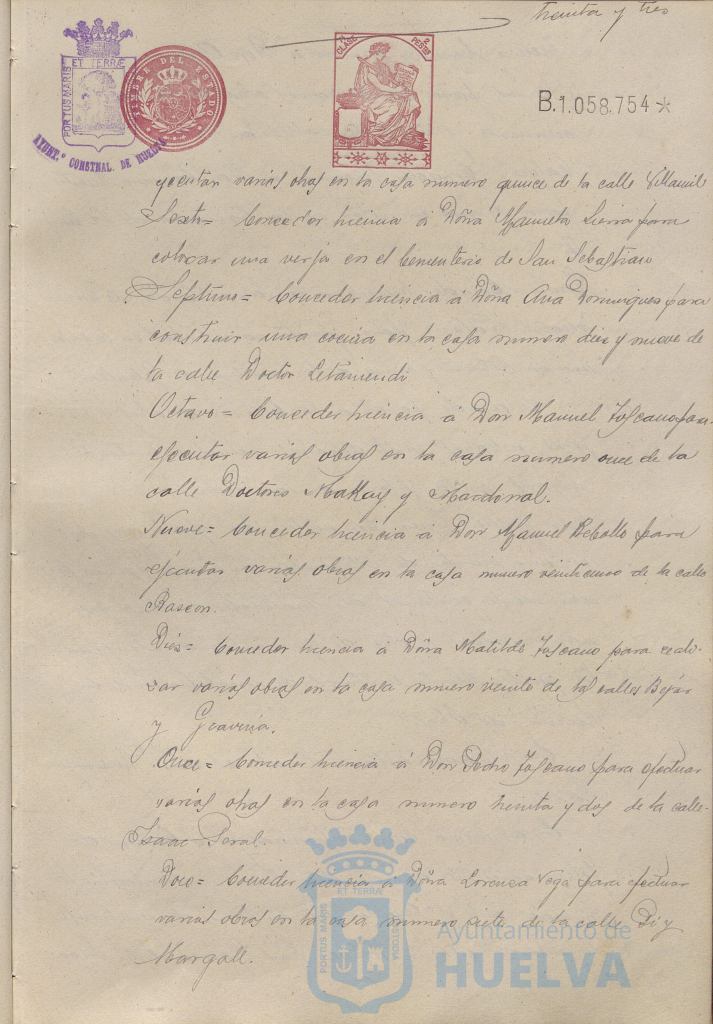 treinta y tres
ET TERRÆ
PORTUS MARIS
AYUNT.º CONSTNAL. DE HUELVA
TIMBRE DEL ESTADO
CLASE 2 PESETAS
B.1.058.754*
ejecutar varias obras en la casa numero quince de la calle Villamil
Sexto= Conceder licencia á Doña Manuela Sierra para
colocar una verja en el Cementerio de San Sebastian
Septimo= Conceder licencia á Doña Ana Dominguez para
construir una cocina en la casa numero diez y nueve de
la calle Doctor Letamendi
Octavo= Conceder licencia á Don Manuel Toscano para
ejecutar varias obras en la casa numero once de la
calle Doctores MaKay y Macdonal.
Nueve= Conceder licencia á Don Manuel Rebollo para
ejecutar varias obras en la casa numero veinticinco de la calle
Rascon.
Diez= Conceder licencia á Doña Matilde Toscano para reali-
zar varias obras en la casa numero veinte de las calles Bejar
y Gravina.
Once= Conceder licencia á Don Pedro Toscano para efectuar
varias obras en la casa numero treinta y dos de la calle
Isaac Peral.
Doce= Conceder licencia á Doña Lorenza Vega para efectuar
varias obras en la casa numero siete de la calle Pi y
Margall.
ET TERRÆ
PORTUS MARIS
CUSTODIA
Ayuntamiento de
HUELVA